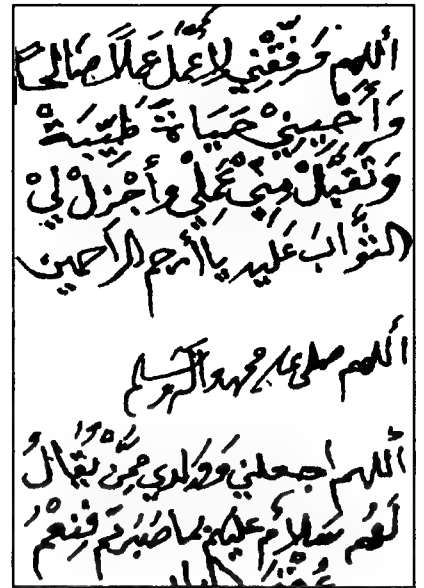 اللهم وفقني لأعمل عملاً صالحاً
وَأَحْيِيني حَيَاةً طَيِّبَةً
وَتَقَبَّلْ مِنِّي عَمَلِي وأَجْزِلْ لِيْ
الثَّوَابَ عَلَيه يا أرحم الراحمين
اللهم صلى على محمد وآله وسلم
اللهم اجعلني وَوَلدي مِمَّنْ يُقَالُ
لَهُم سَلامٌ عليكم بما صَبَرتم فَنِعْمَ
عُقْبَى الدار